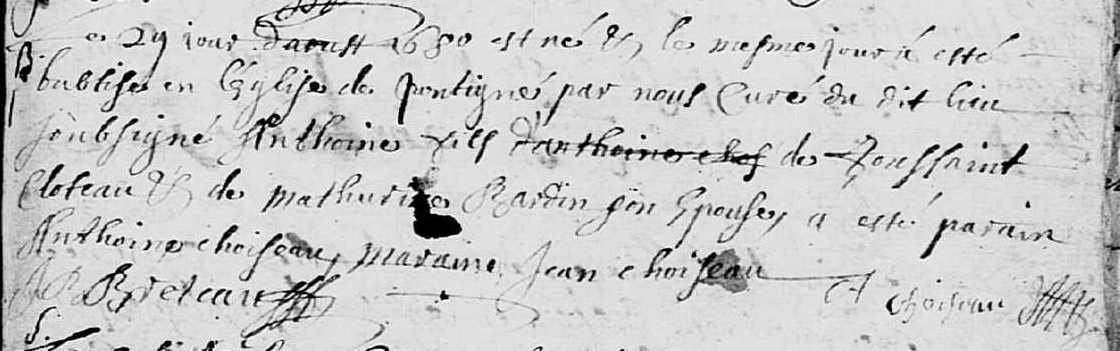 e 29 jour Daoust 1680 est né & le mesme jour a esté
babtisé en l'églisse de pontigné par nous Curé du dit lieu
soubsigné Anthoine fils d'anthoine de Toussaint
Cloteau & de mathurine Bardin son Epouse, a esté parain
Anthoine choiseau, maraine Jean choiseau
Breteau A choiseau